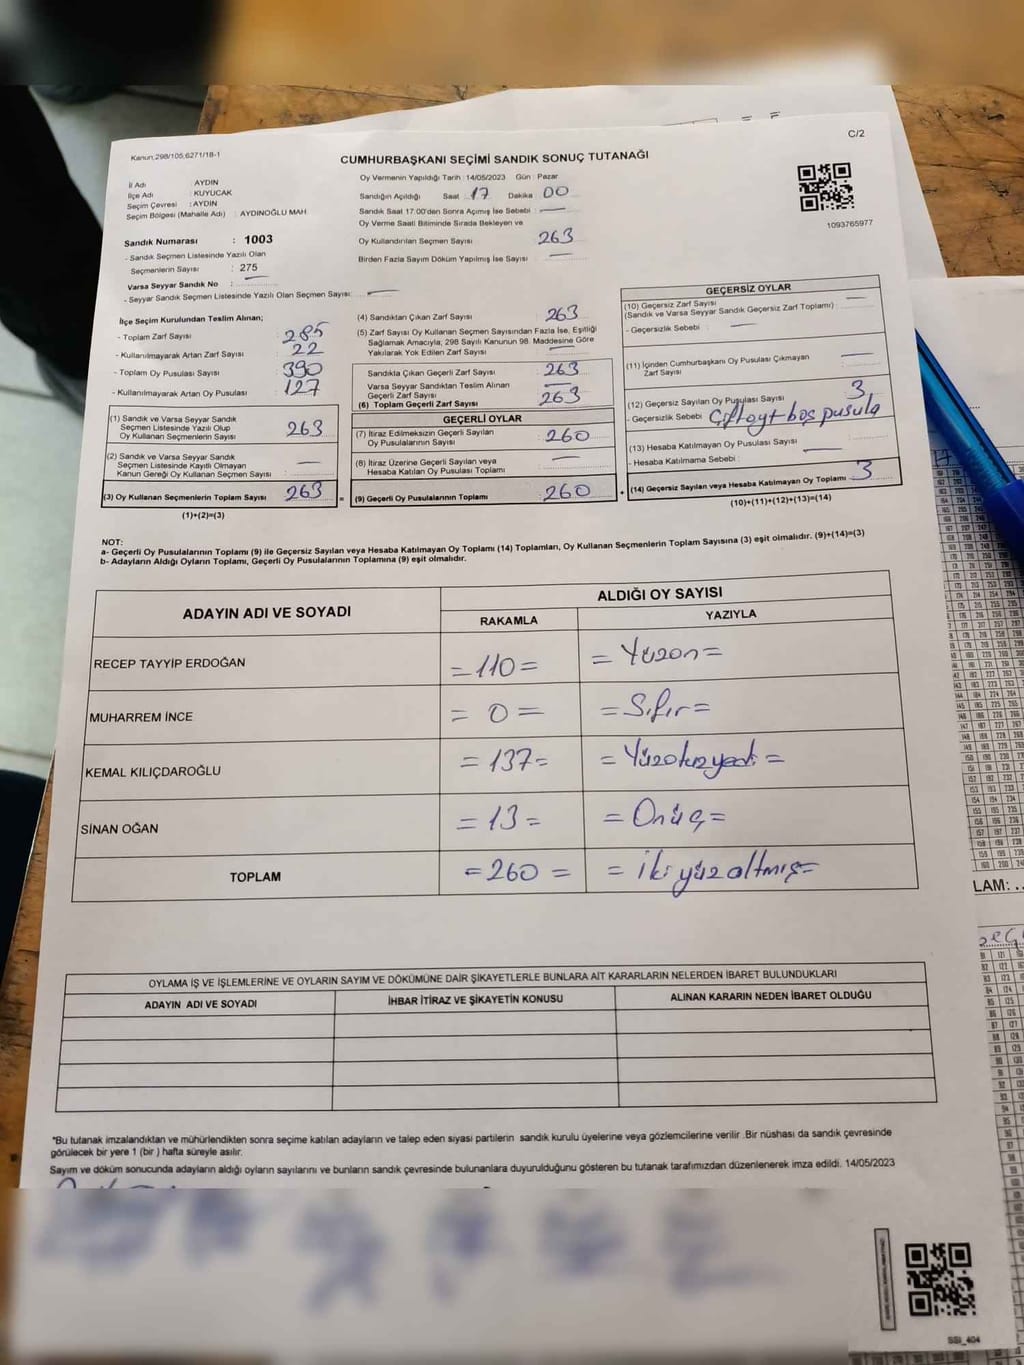 C/2
Kanun,298/105,6271/18-1
CUMHURBAŞKANI SEÇİMİ SANDIK SONUÇ TUTANAĞI
İl Adı : AYDIN
İlçe Adı : KUYUCAK
Seçim Çevresi : AYDIN
Seçim Bölgesi (Mahalle Adı) : AYDINOĞLU MAH
Sandık Numarası : 1003
- Sandık Seçmen Listesinde Yazılı Olan
Seçmenlerin Sayısı : 275
Varsa Seyyar Sandık No : —
- Seyyar Sandık Seçmen Listesinde Yazılı Olan Seçmen Sayısı: —
Oy Vermenin Yapıldığı Tarih :14/05/2023 Gün : Pazar
Sandığın Açıldığı Saat 17 Dakika 00
Sandık Saat 17:00'den Sonra Açımış İse Sebebi : —
Oy Verme Saati Bitiminde Sırada Bekleyen ve
Oy Kullandırılan Seçmen Sayısı 263
Birden Fazla Sayım Döküm Yapılmış İse Sayısı —
1093765977
İlçe Seçim Kurulundan Teslim Alınan;
- Toplam Zarf Sayısı : 285
- Kullanılmayarak Artan Zarf Sayısı : 22
- Toplam Oy Pusulası Sayısı : 390
- Kullanılmayarak Artan Oy Pusulası : 127
(1) Sandık ve Varsa Seyyar Sandık
Seçmen Listesinde Yazılı Olup
Oy Kullanan Seçmenlerin Sayısı : 263
(2) Sandık ve Varsa Seyyar Sandık
Seçmen Listesinde Kayıtlı Olmayan
Kanun Gereği Oy Kullanan Seçmen Sayısı : —
(3) Oy Kullanan Seçmenlerin Toplam Sayısı : 263 =
(1)+(2)=(3)
(4) Sandıktan Çıkan Zarf Sayısı : 263
(5) Zarf Sayısı Oy Kullanan Seçmen Sayısından Fazla İse, Eşitliği
Sağlamak Amacıyla; 298 Sayılı Kanunun 98. Maddesine Göre
Yakılarak Yok Edilen Zarf Sayısı : —
Sandıkta Çıkan Geçerli Zarf Sayısı : 263
Varsa Seyyar Sandıktan Teslim Alınan
Geçerli Zarf Sayısı : —
(6) Toplam Geçerli Zarf Sayısı : 263
GEÇERLİ OYLAR
(7) İtiraz Edilmeksizin Geçerli Sayılan
Oy Pusulalarının Sayısı : 260
(8) İtiraz Üzerine Geçerli Sayılan veya
Hesaba Katılan Oy Pusulası Toplamı : —
(9) Geçerli Oy Pusulalarının Toplamı : 260 +
GEÇERSİZ OYLAR
(10) Geçersiz Zarf Sayısı
(Sandık ve Varsa Seyyar Sandık Geçersiz Zarf Toplamı) : —
- Geçersizlik Sebebi : —
(11) İçinden Cumhurbaşkanı Oy Pusulası Çıkmayan
Zarf Sayısı : —
(12) Geçersiz Sayılan Oy Pusulası Sayısı : 3
- Geçersizlik Sebebi : Çift oy + boş pusula
(13) Hesaba Katılmayan Oy Pusulası Sayısı : —
- Hesaba Katılmama Sebebi :
(14) Geçersiz Sayılan veya Hesaba Katılmayan Oy Toplamı : 3
(10)+(11)+(12)+(13)=(14)
NOT:
a- Geçerli Oy Pusulalarının Toplamı (9) ile Geçersiz Sayılan veya Hesaba Katılmayan Oy Toplamı (14) Toplamları, Oy Kullanan Seçmenlerin Toplam Sayısına (3) eşit olmalıdır. (9)+(14)=(3)
b- Adayların Aldığı Oyların Toplamı, Geçerli Oy Pusulalarının Toplamına (9) eşit olmalıdır.
ADAYIN ADI VE SOYADI
ALDIĞI OY SAYISI
RAKAMLA YAZIYLA
RECEP TAYYİP ERDOĞAN =110= =Yüzon=
MUHARREM İNCE =0= =Sıfır=
KEMAL KILIÇDAROĞLU =137= =Yüzotuzyedi=
SİNAN OĞAN =13= =Onüç=
TOPLAM =260= =ikiyüzaltmış=
OYLAMA İŞ VE İŞLEMLERİNE VE OYLARIN SAYIM VE DÖKÜMÜNE DAİR ŞİKAYETLERLE BUNLARA AİT KARARLARIN NELERDEN İBARET BULUNDUKLARI
ADAYIN ADI VE SOYADI İHBAR İTİRAZ VE ŞİKAYETİN KONUSU ALINAN KARARIN NEDEN İBARET OLDUĞU
*Bu tutanak imzalandıktan ve mühürlendikten sonra seçime katılan adayların ve talep eden siyasi partilerin sandık kurulu üyelerine veya gözlemcilerine verilir .Bir nüshası da sandık çevresinde
görülecek bir yere 1 (bir ) hafta süreyle asılır.
Sayım ve döküm sonucunda adayların aldığı oyların sayılarını ve bunların sandık çevresinde bulunanlara duyurulduğunu gösteren bu tutanak tarafımızdan düzenlenerek imza edildi. 14/05/2023
LAM: ..
SSI_404